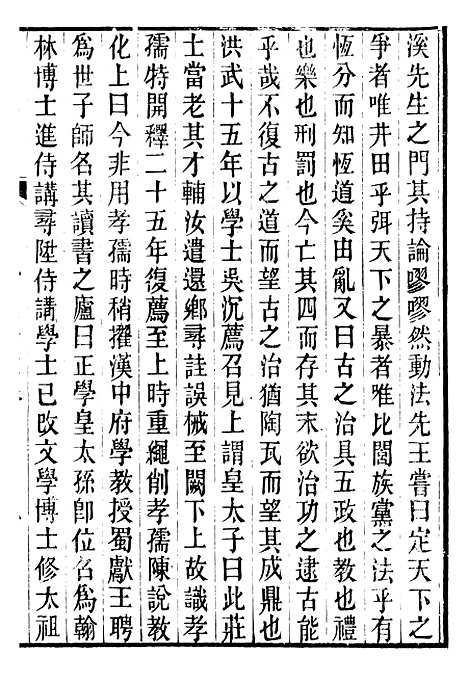 溪先生之門其持論嘐嘐然動法先王嘗曰定天下之
爭者唯井田乎弭天下之暴者唯比閭族黨之法乎有
恆分而知恆道奚由亂又曰古之治具五政也教也禮
也樂也刑罰也今亡其四而存其末欲治功之逮古能
乎哉不復古之道而望古之治猶陶瓦而望其成鼎也
洪武十五年以學士吳沉薦召見上謂皇太子曰此莊
士當老其才輔汝遣還鄉尋詿誤械至闕下上故識孝
孺特開釋二十五年復薦至上時重繩削孝孺陳說教
化上曰今非用孝孺時稍擢漢中府學教授蜀獻王聘
爲世子師名其讀書之廬曰正學皇太孫卽位名爲翰
林博士進侍講尋陞侍講學士已改文學博士修太祖